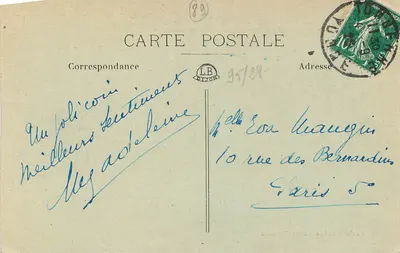 89
CARTE POSTALE
Correspondance
LB
DIJON
Adresse
95/98
10
Un joli coin
Meilleurs sentiments
Magdeleine
Mlle Eva Mangin
10 rue des Bernardins
Paris 5e